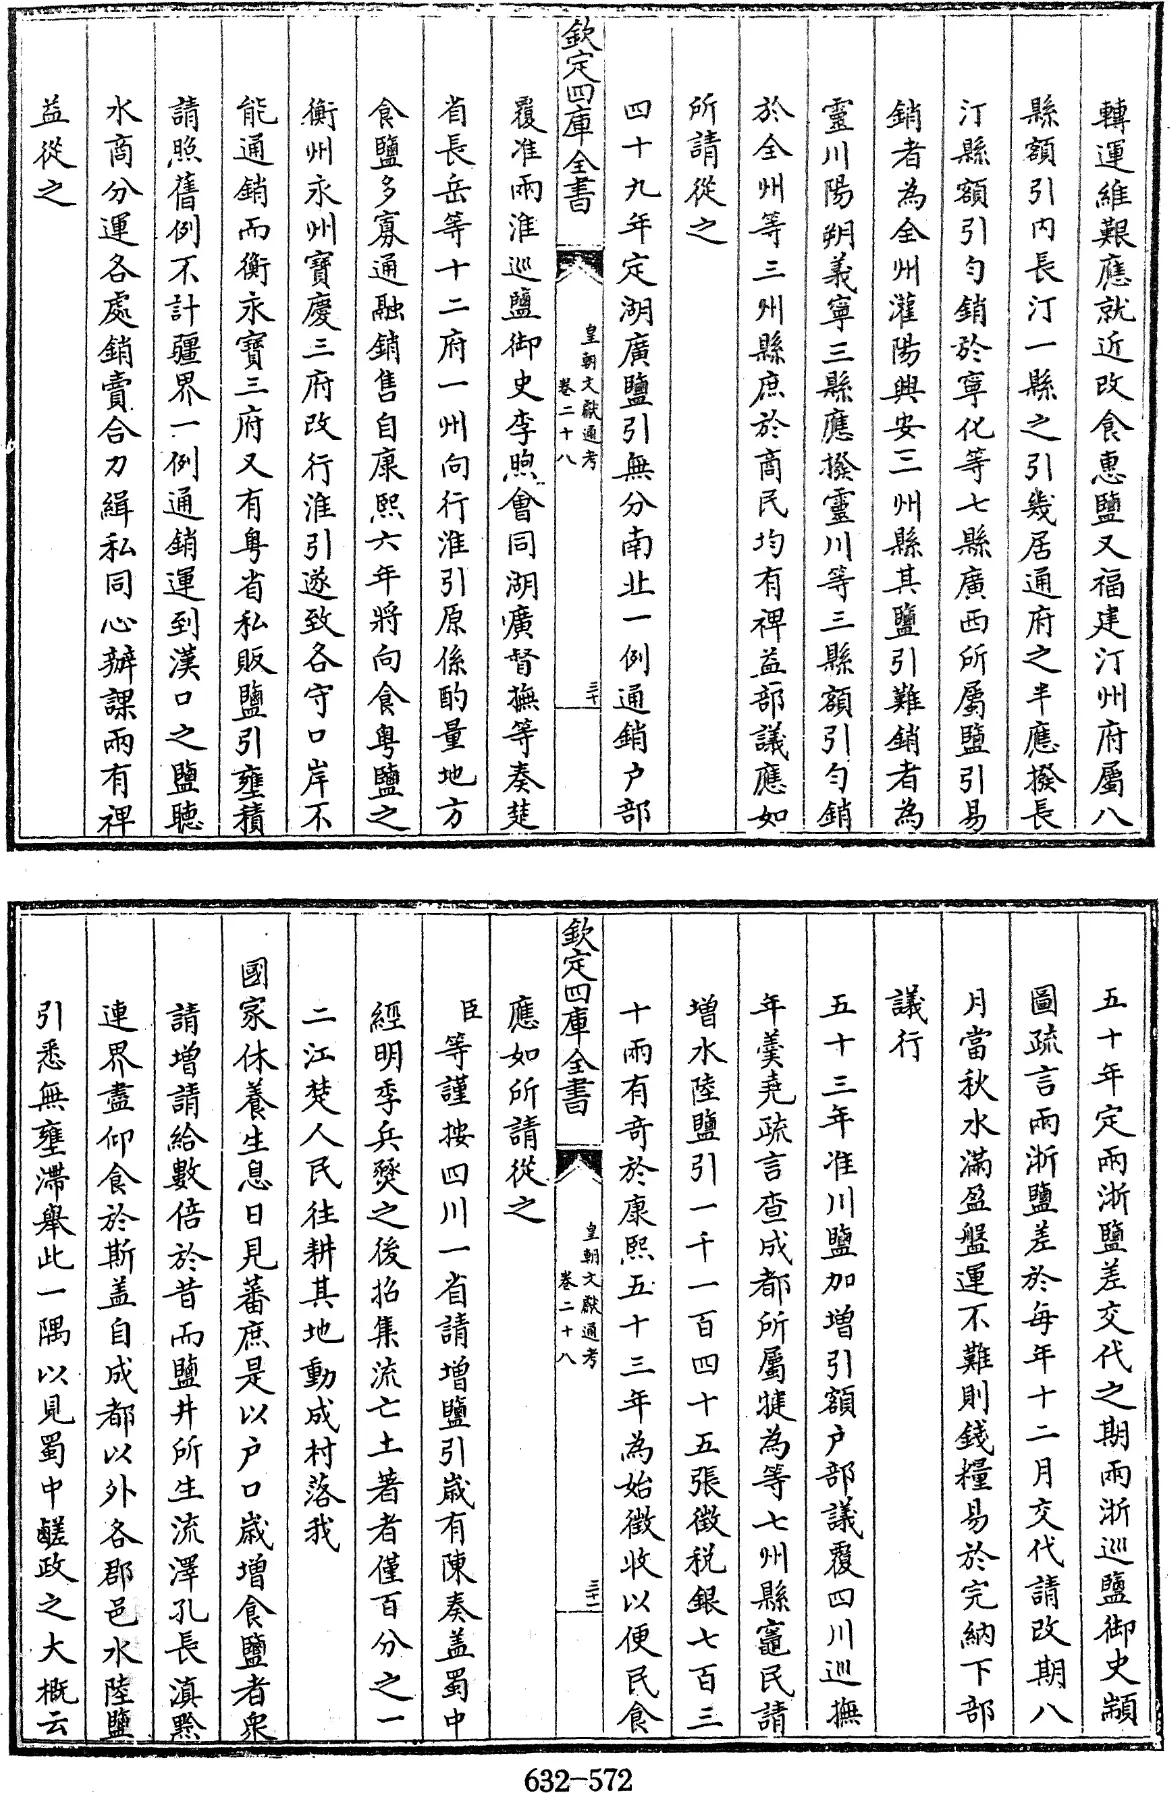 轉運維艱應就近改食惠鹽又福建汀州府屬八
縣額引内長汀一縣之引幾居通府之半應撥長
汀縣額引匀銷於寧化等七縣廣西所屬鹽引易
銷者為全州灌陽興安三州縣其鹽引難銷者為
靈川陽朔義寧三縣應撥靈川等三縣額引匀銷
於全州等三州縣庶於商民均有裨益部議應如
所請從之
四十九年定湖廣鹽引無分南北一例通銷户部
欽定四庫全書
皇朝文獻通考
卷二十八
三十
覆准兩淮巡鹽御史李煦會同湖廣督撫等奏楚
省長岳等十二府一州向行淮引原係酌量地方
食鹽多寡通融銷售自康熙六年將向食粤鹽之
衡州永州寳慶三府改行淮引遂致各守口岸不
能通銷而衡永寳三府又有粤省私販鹽引壅積
請照舊例不計疆界一例通銷運到漢口之鹽聽
水商分運各處銷賣合力緝私同心辦課兩有裨
益從之
五十年定兩浙鹽差交代之期兩浙巡鹽御史顓
圖疏言兩浙鹽差於每年十二月交代請改期八
月當秋水滿盈盤運不難則錢糧易於完納下部
議行
五十三年准川鹽加增引額户部議覆四川巡撫
年羹堯疏言查成都所屬犍為等七州縣竈民請
增水陸鹽引一千一百四十五張徴税銀七百三
十兩有奇於康熙五十三年為始徴收以便民食
欽定四庫全書
皇朝文獻通考
卷二十八
三十一
應如所請從之
臣等謹按四川一省請增鹽引歳有陳奏盖蜀中
經明季兵燹之後招集流亡土著者僅百分之一
二江楚人民往耕其地動成村落我
國家休養生息日見蕃庶是以户口歳增食鹽者衆
請增請給數倍於昔而鹽井所生流澤孔長滇黔
連界盡仰食於斯盖自成都以外各郡邑水陸鹽
引悉無壅滯舉此一隅以見蜀中鹺政之大概云
632-572